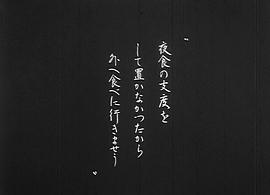 〝夜食の支度を
して置かなかつたから
外へ食べに行きませう〟